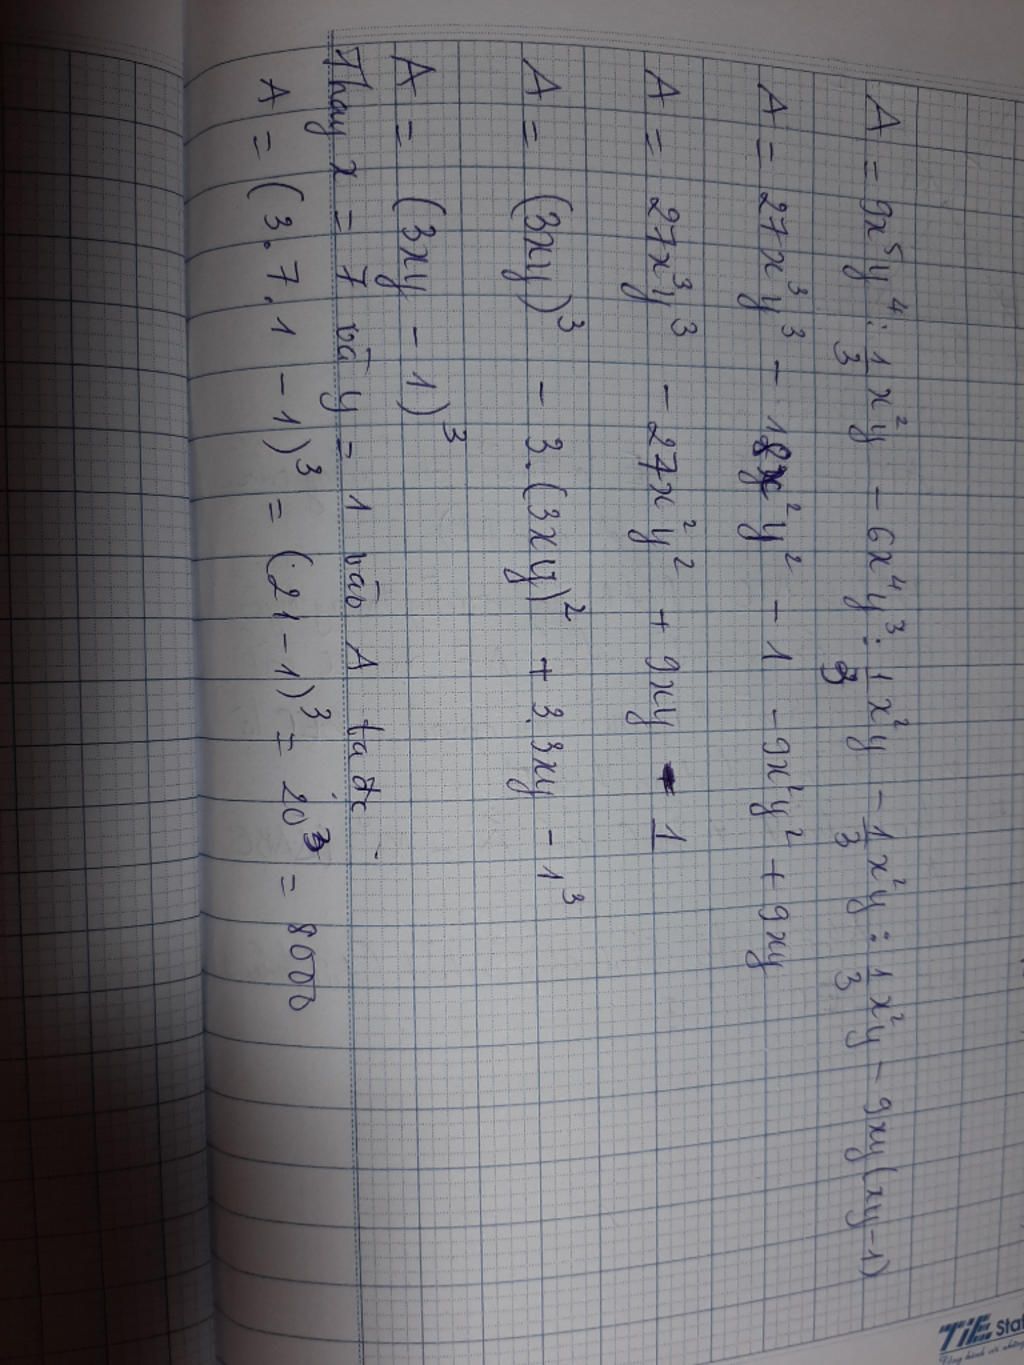 A = 9x⁵y⁴ : 1/3 x²y - 6x⁴y³ : 1/3 x²y - 1/3 x²y : 1/3 x²y - 9xy(xy-1)
A = 27x³y³ - 18x²y² - 1 - 9x²y² + 9xy
A = 27x³y³ - 27x²y² + 9xy - 1
A = (3xy)³ - 3.(3xy)² + 3.3xy - 1³
A = (3xy - 1)³
Thay x = 7 và y = 1 vào A ta đc
A = (3.7.1 - 1)³ = (21 - 1)³ = 20³ = 8000
TiE Stat